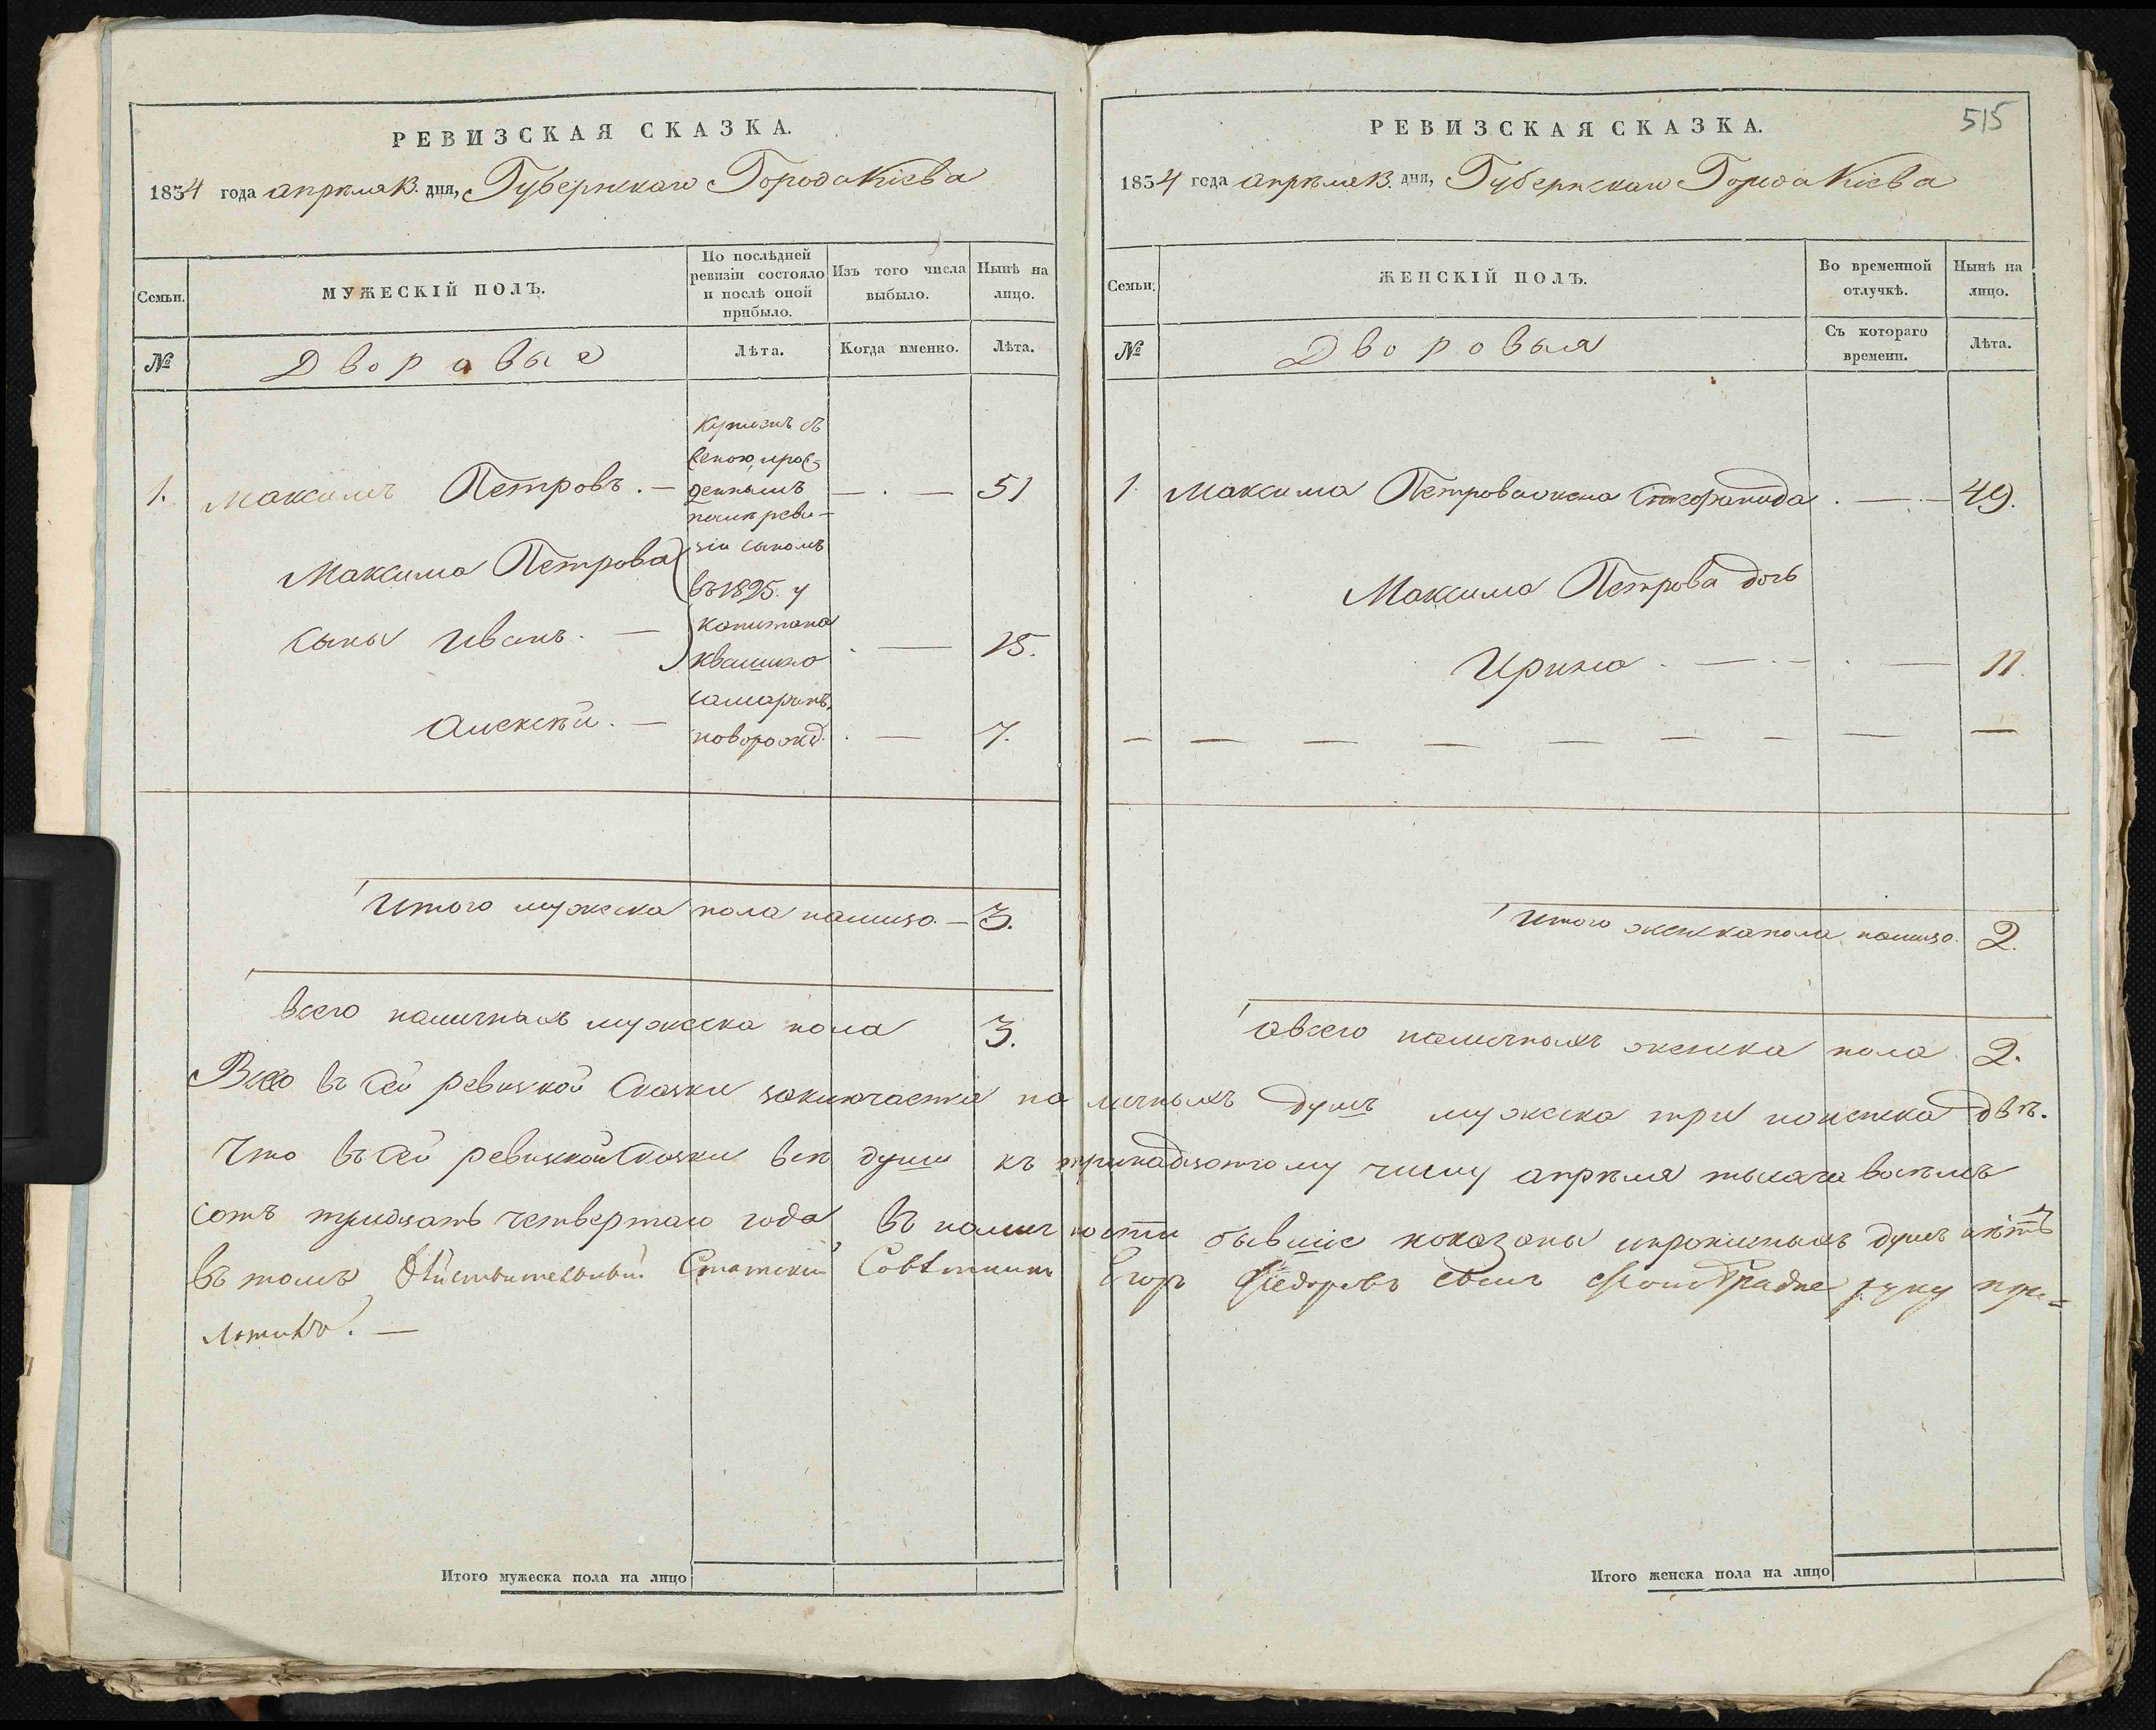 РЕВИЗСКАЯ СКАЗКА.
1834 года апрѣля 13. дня, Губернскаго Города Кіева
Семьи.
МУЖЕСКІЙ ПОЛЪ.
По послѣдней ревизіи состояло и послѣ оной прибыло.
Изъ того числа выбыло.
Нынѣ на лицо.
№
Дворовые
Лѣта.
Когда именно.
Лѣта.
1. Максимъ Петровъ. — — . — 51
Максима Петрова
сыны Иванъ. — . — 15.
Алексѣй. — . — 7.
Купленъ съ
женою, и рож-
деннымъ
послѣ реви-
зіи сыномъ
въ 1825. у
капитана
Квашино
самаринъ,
новорожд.
Итого мужеска пола налицо. — 3.
всего наличныхъ мужеска пола 3.
Итого мужеска пола на лицо
515
РЕВИЗСКАЯ СКАЗКА.
1834 года апрѣля 13. дня, Губернскаго Города Кіева
Семьи.
ЖЕНСКІЙ ПОЛЪ.
Во временной отлучкѣ.
Нынѣ на лицо.
№
Дворовыя
Съ котораго времени.
Лѣта.
1. Максима Петрова жена . — . — 49.
Максима Петрова дочь
Ирина . — . — . — 11.
Итого женска пола налицо. 2.
а всего наличныхъ женска пола 2.
Итого женска пола на лицо
Всего въ сей ревизской сказки заключается наличныхъ душъ мужеска три и женска двѣ.
Что въ сей ревизской сказки всѣ души къ тринадцатому числу апрѣля тысяча восѣмъ
сотъ тридцать четвертаго года, въ наличности бывшіе показаны и прописныхъ душъ нѣтъ
въ томъ Дѣйствительный Статскій Совѣтникъ Егоръ Федоровъ сынъ руку при=
ложилъ. —